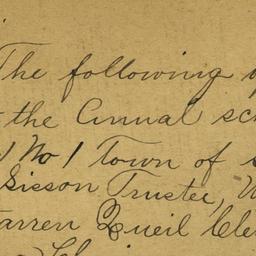 The following
the Annual sc
No 1 Town of
Sisson Trustee, W
arren Queil Cle